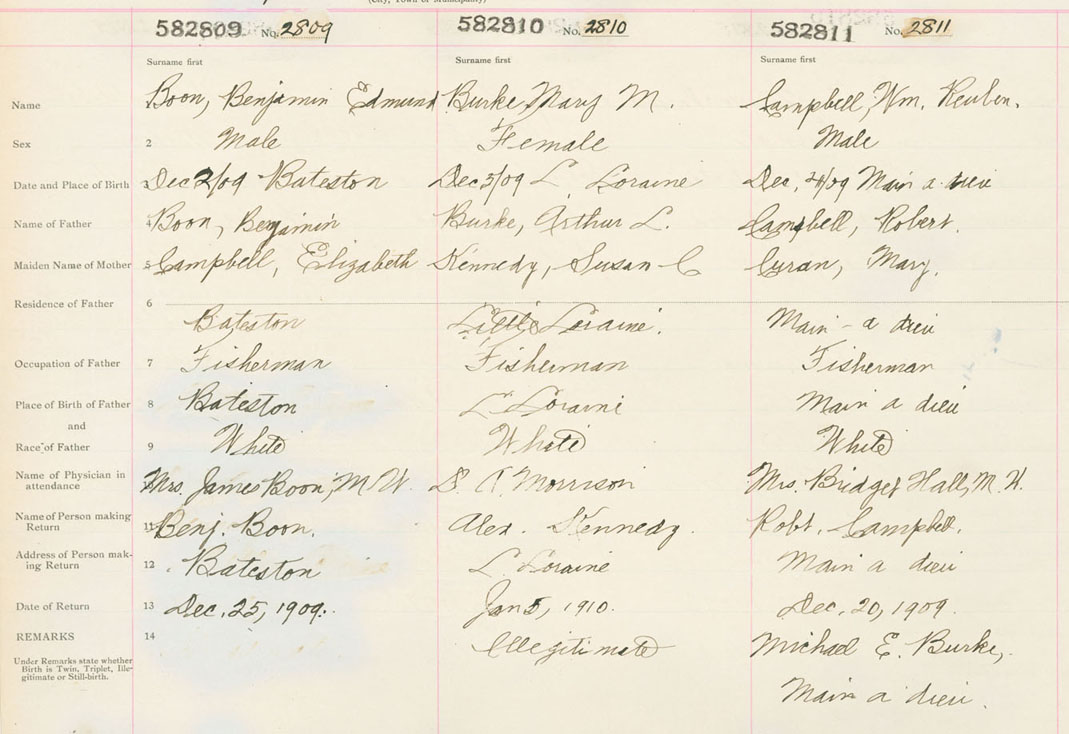 (City, Town or Municipality)
582809 No. 2809 582810 No. 2810 582811 No. 2811
Surname first Surname first Surname first
Name Boon, Benjamin Edmund Burke, Mary M. Campbell, Wm. Reuben.
Sex 2 Male Female Male
Date and Place of Birth 3 Dec 2/09 Bateston Dec 3/09 L. Loraine Dec, 4/09 Main a dieu
Name of Father 4 Boon, Benjamin Burke, Arthur L. Campbell, Robert.
Maiden Name of Mother 5 Campbell, Elizabeth Kennedy, Susan C Curan, Mary.
Residence of Father 6
Bateston Little Loraine. Main-a dieu
Occupation of Father 7 Fisherman Fisherman Fisherman
Place of Birth of Father 8 Bateston L Loraine Main a dieu
and
Race of Father 9 White White White
Name of Physician in
attendance 10 Mrs. James Boon, M W. Morrison Mrs. Bridget Hall, M. W.
Name of Person making
Return 11 Benj. Boon. Alex. Kennedy. Robt. Campbell.
Address of Person mak-
ing Return 12 Bateston L Loraine Main a dieu
Date of Return 13 Dec. 25, 1909. Jan 5, 1910. Dec. 20, 1909.
REMARKS 14 Illegitimate Michael E. Burke,
Under Remarks state whether
Birth is Twin, Triplet, Ille-
gitimate or Still-birth.
Main a dieu.